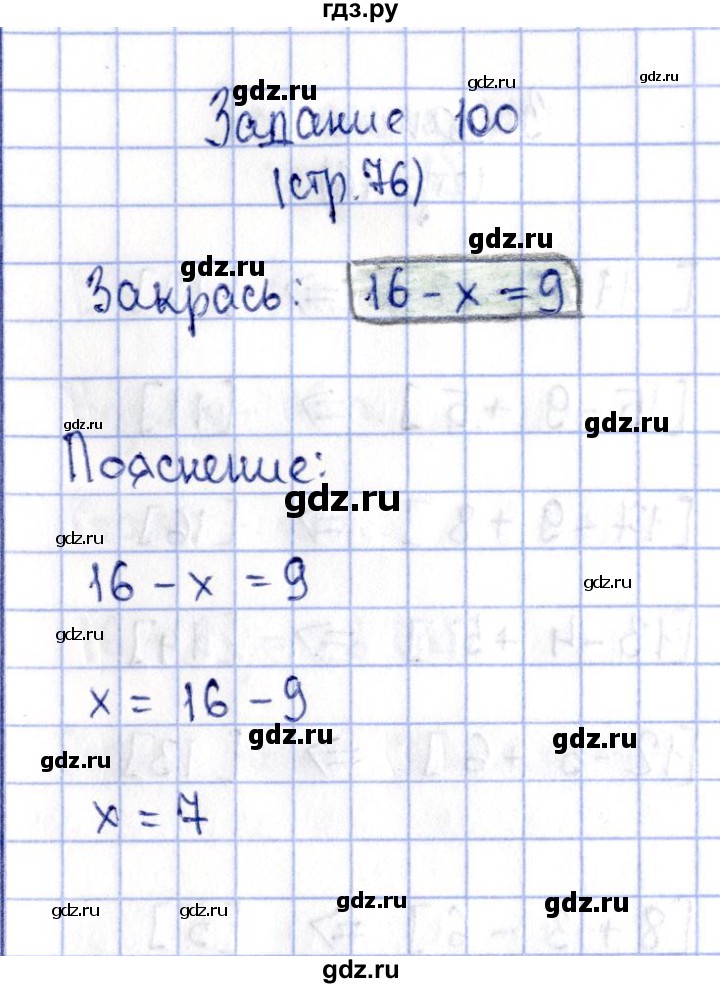 гдз.ру
gdz.ru
gdz.ru
gdz.ru
Задание 100
(стр. 76)
gdz.ru
gdz.ru
Закрась: 16 - x = 9
gdz.ru
gdz.ru
Пояснение:
gdz.ru
gdz.ru
gdz.ru
16 - x = 9
gdz.ru
x = 16 - 9
gdz.ru
gdz.ru
gdz.ru
x = 7
gdz.ru
gdz.ru
gdz.ru
gdz.ru
gdz.ru